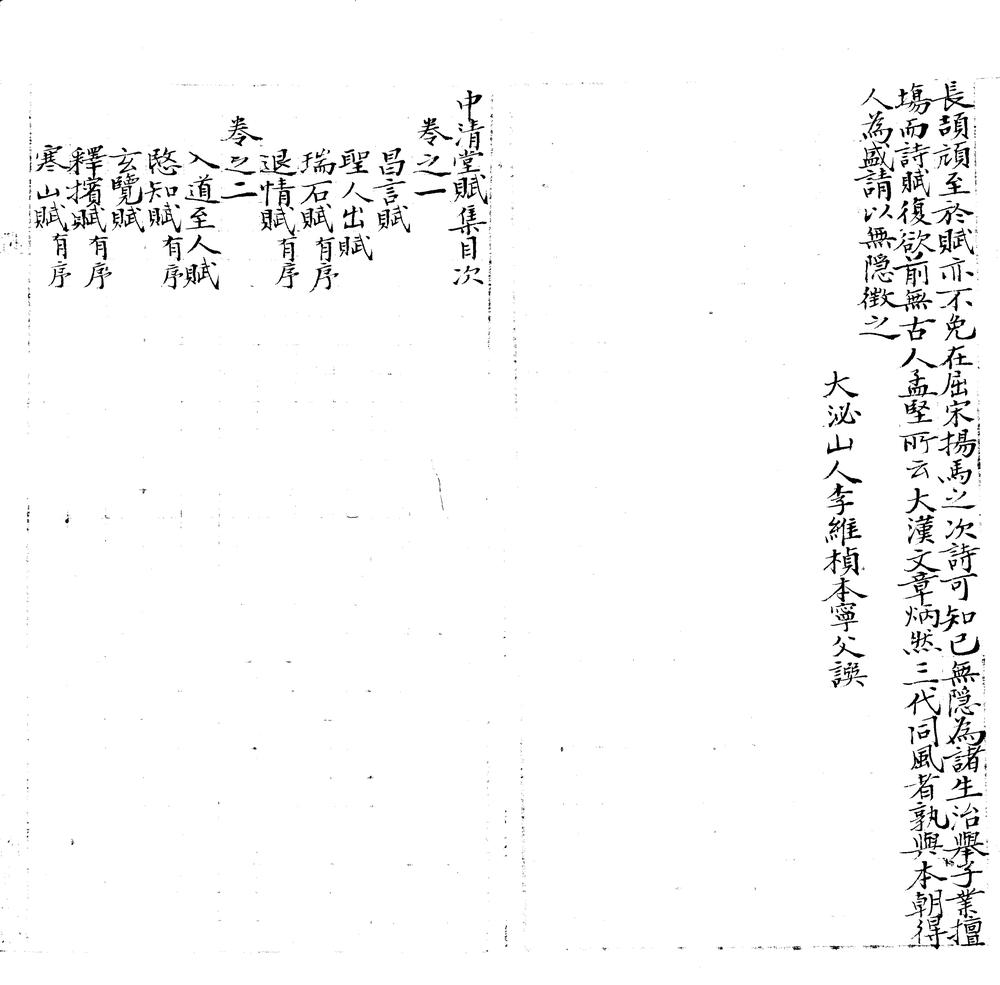 長頡頑至於賦亦不免在屈宋揚馬之次詩可知已無隱為諸生治舉子業擅
塲而詩賦復欲前無古人孟堅所云大漢文章炳然三代同風者孰與本朝得
人為盛請以無隱徵之
大泌山人李維楨本寧父譔
中清堂賦集目次
卷之一
昌言賦
聖人出賦
瑞石賦有序
退情賦有序
卷之二
入道至人賦
愍知賦有序
玄覽賦
釋擯賦有序
寒山賦有序